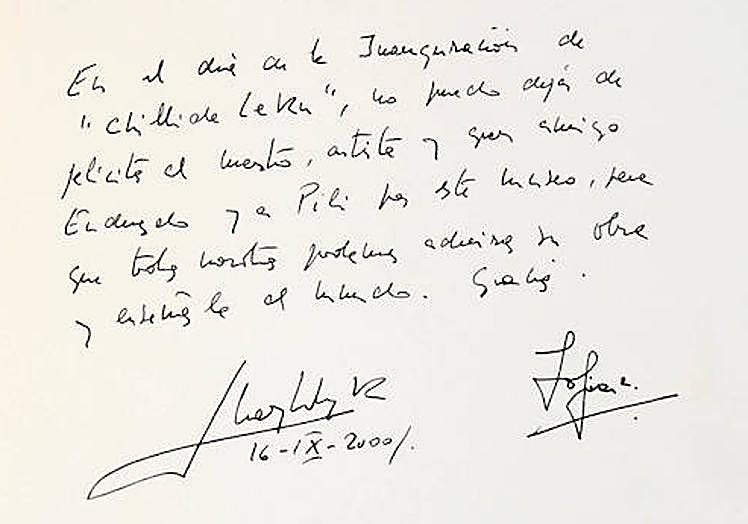 En el día de la Inauguración de
"Chillida Leku", no puedo dejar de
felicitar al maestro, artista y gran amigo
Eduardo y a Pili por este museo, para
que todos nosotros podamos admirar su obra
y enseñarla al mundo. Gracias.
Juan Carlos R
Sofía R.
16-IX-2000